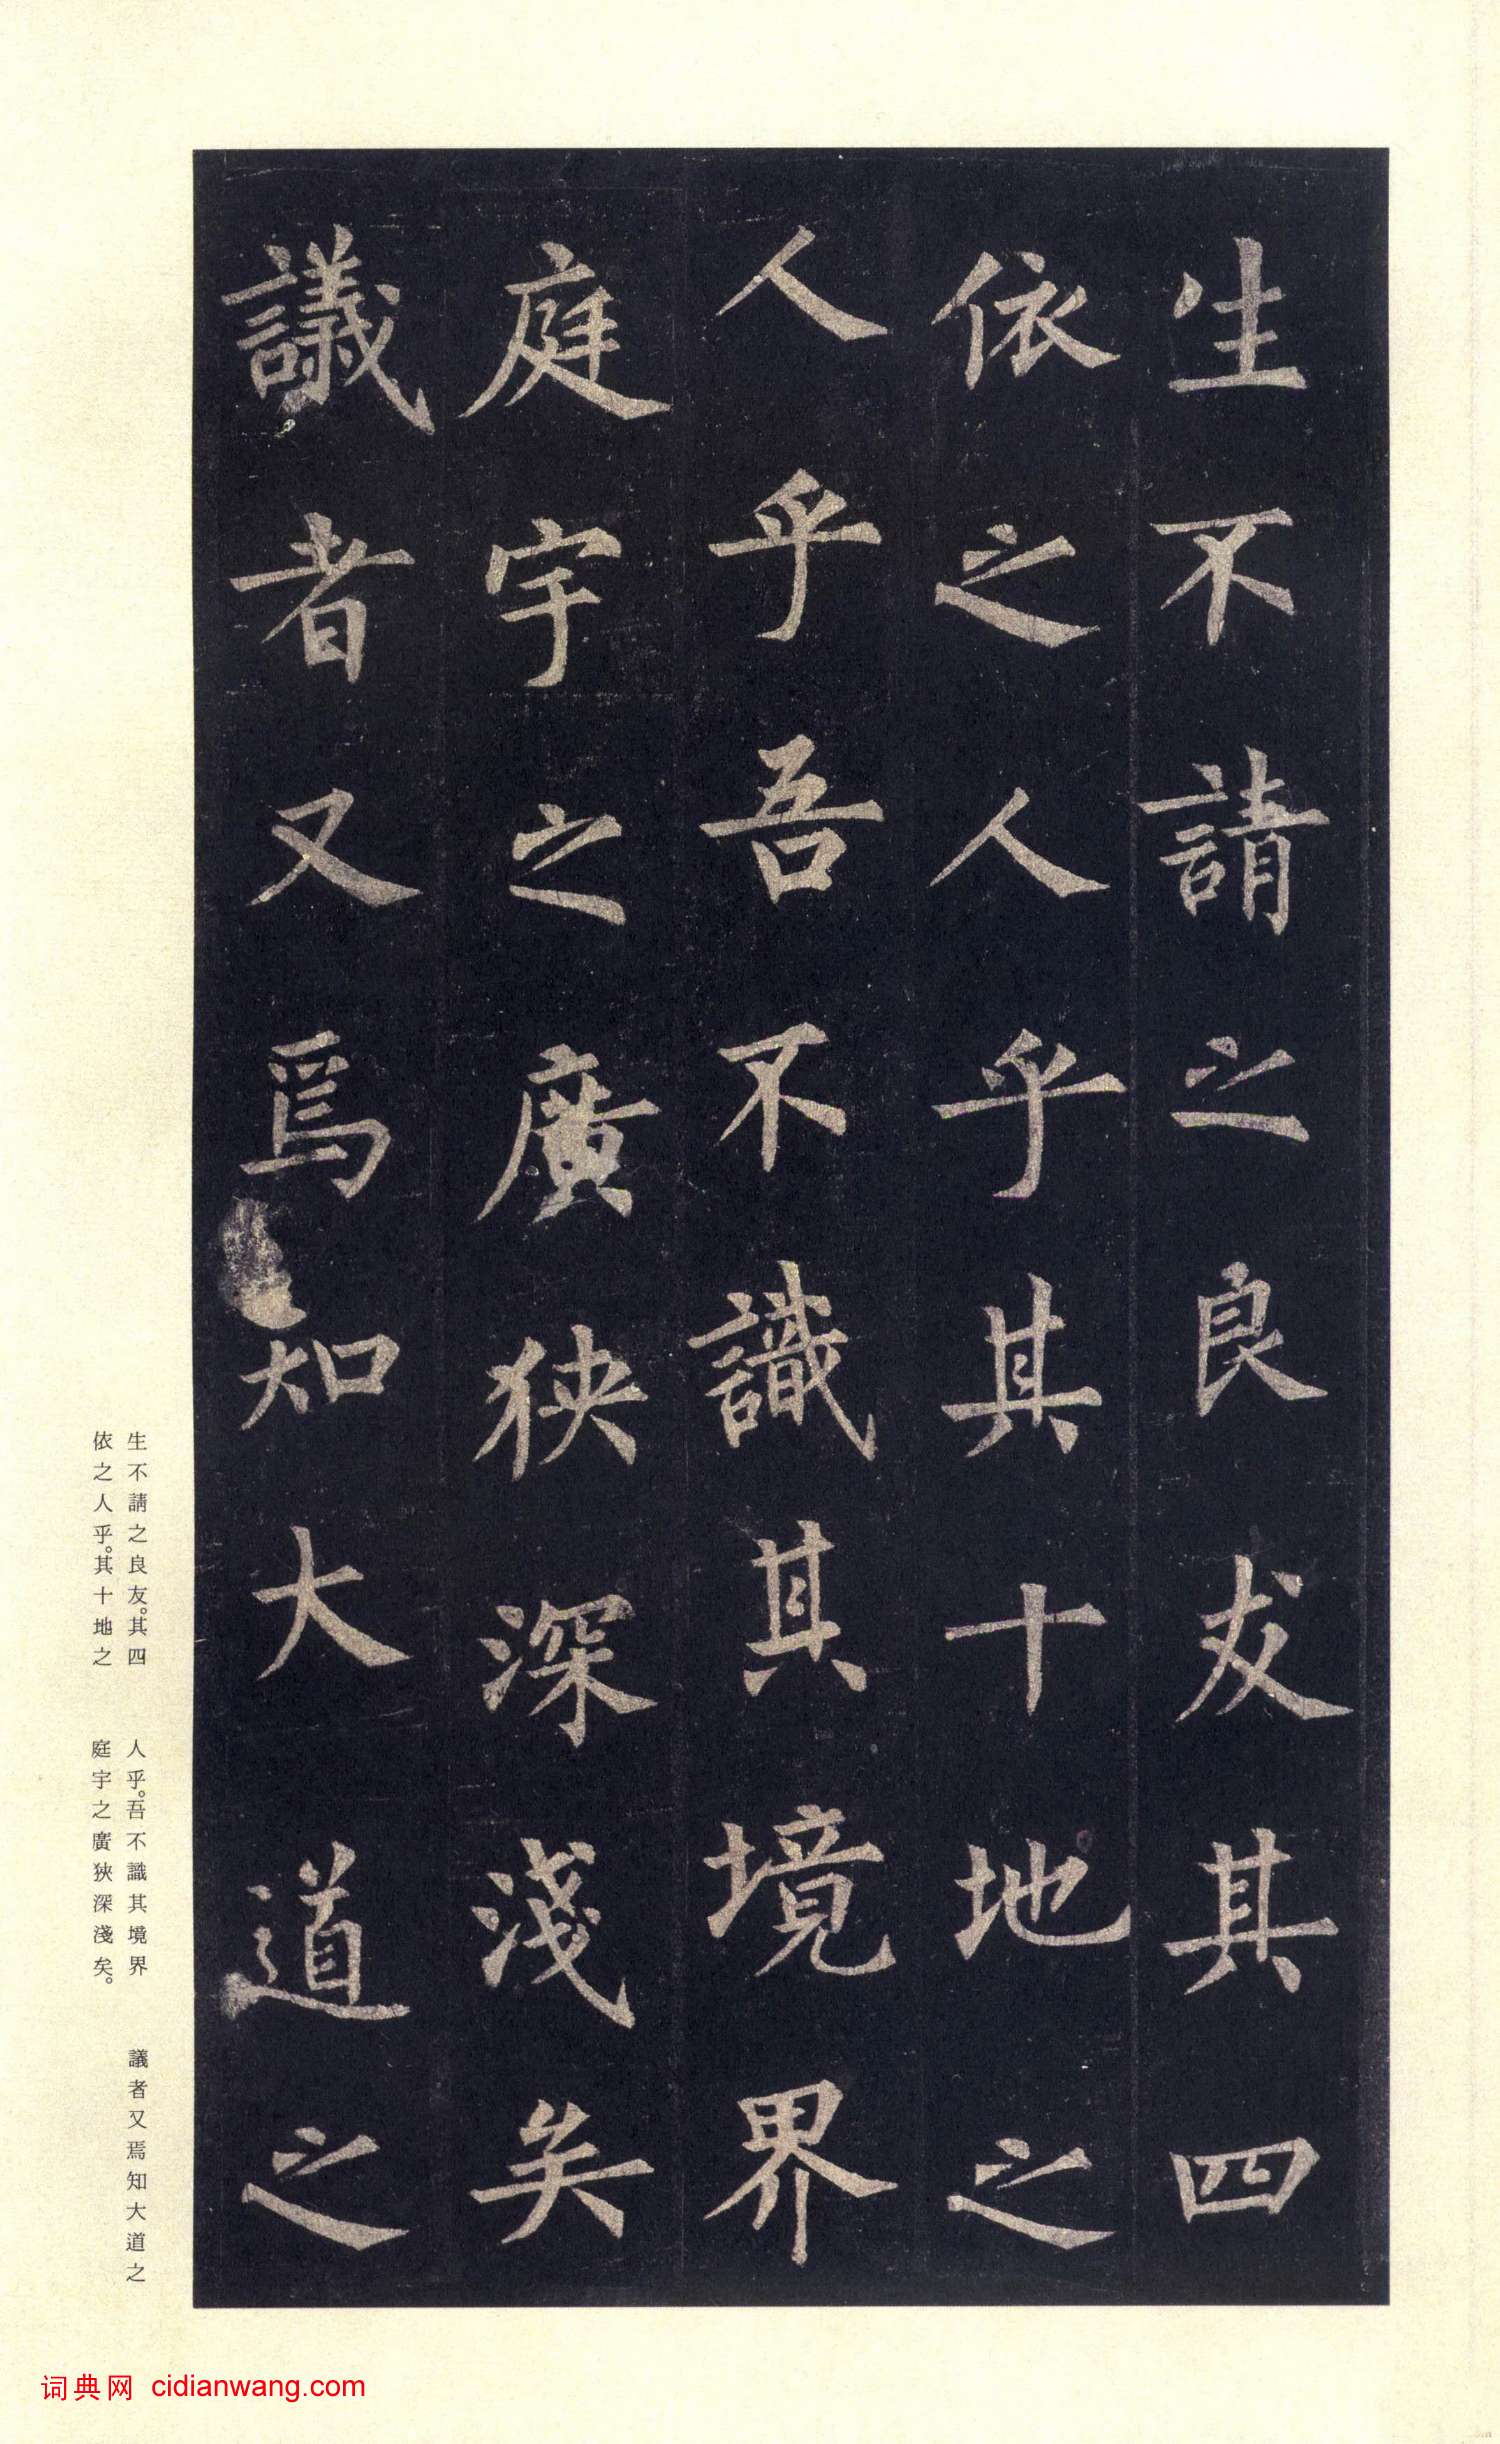 生不請之良友其四
依之人乎其十地之
人乎吾不識其境界
庭宇之廣狹深淺矣
議者又焉知大道之
生不請之良友。其四
依之人乎。其十地之
人乎。吾不識其境界
庭宇之廣狹深淺矣。
議者又焉知大道之
词典网 cidianwang.com